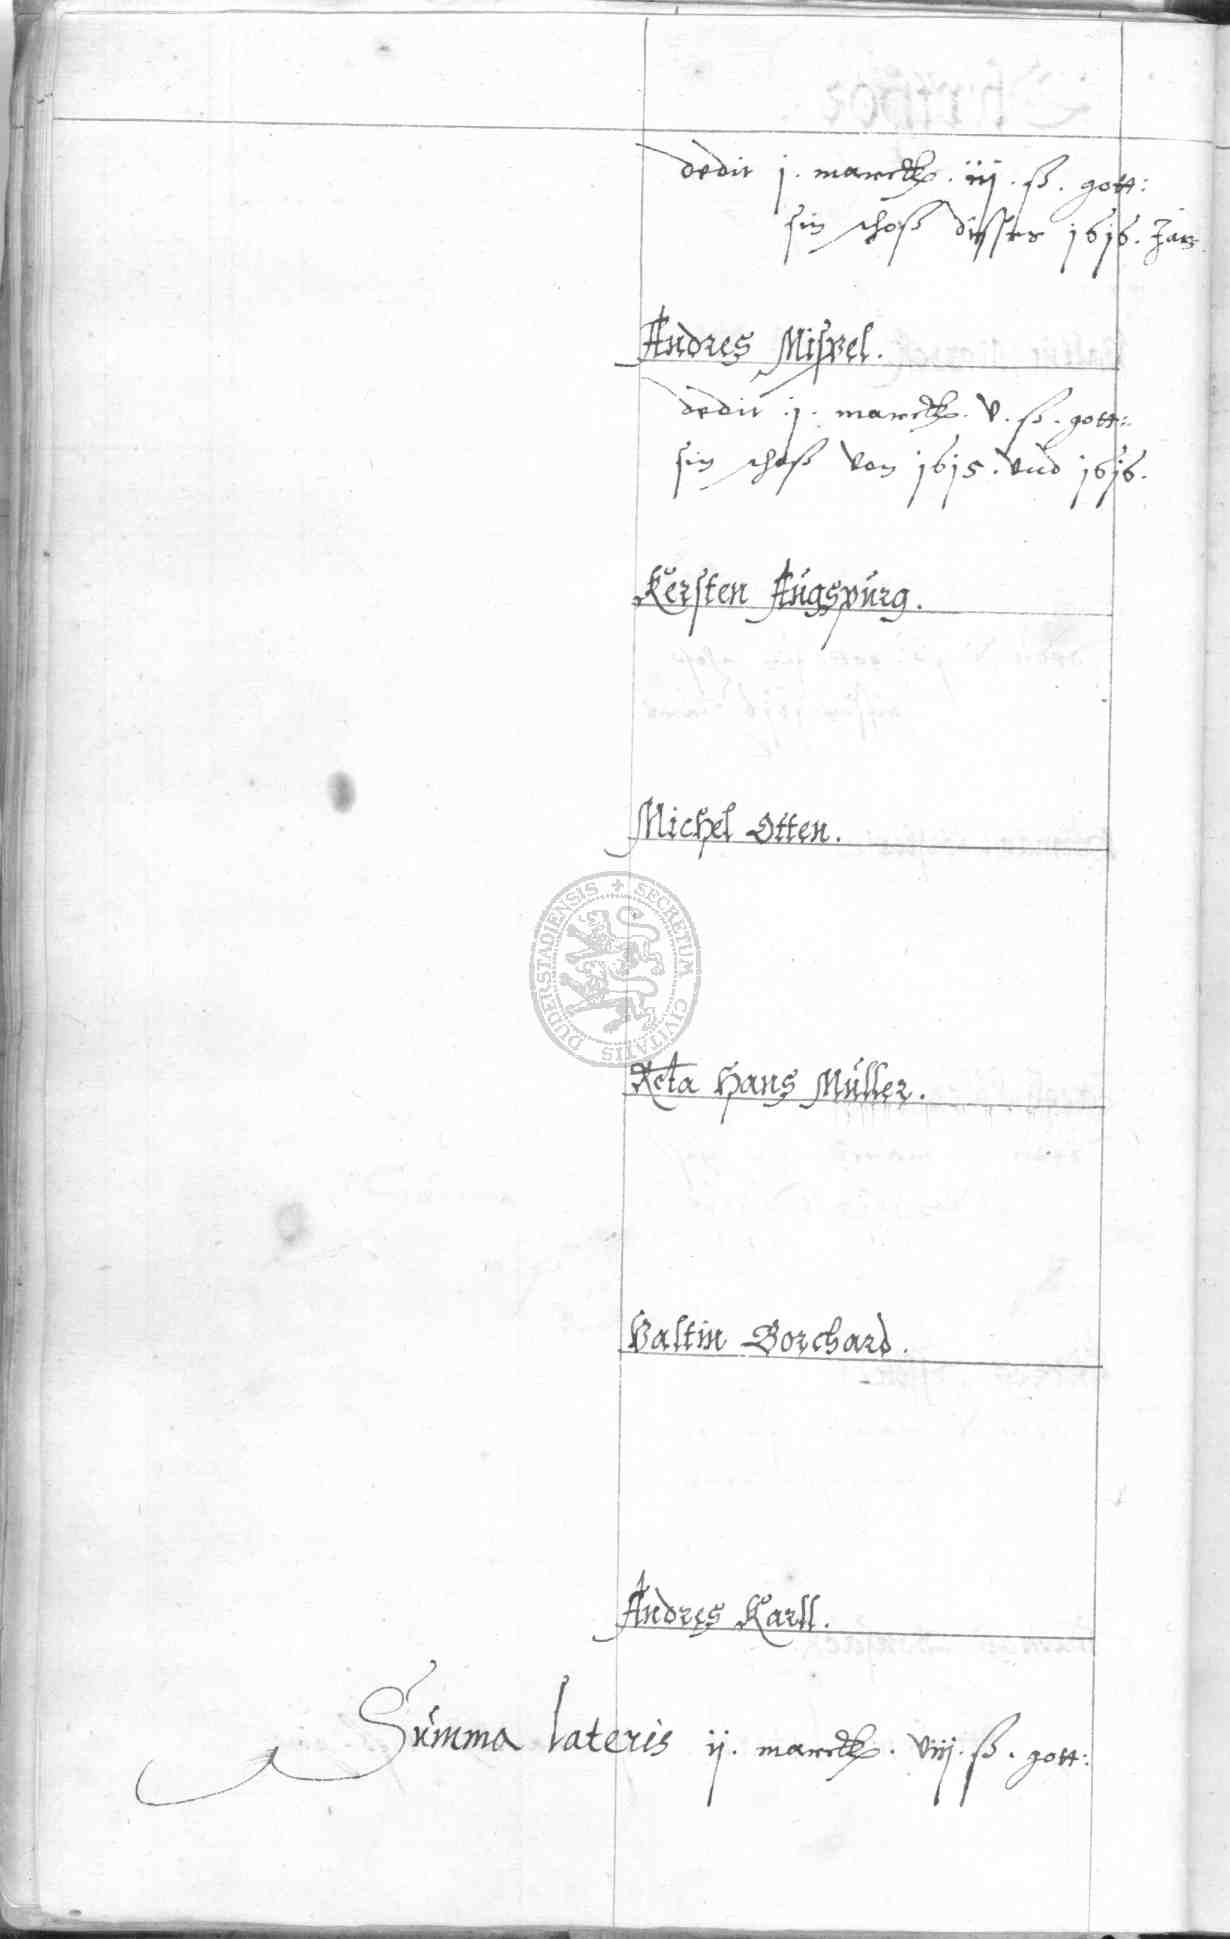 dedit j. marck. iij. ß. gott:
sin schoß disses 1616. Jars
Andres Mispel.
dedit j. marck. v. ß. gott:
sin schoß von 1615. vnd 1616.
Kersten Augspurg.
Michel Otten.
DUDERSTADIENSIS + SECRETUM CIVITATIS
Relicta Hans Müller.
Valtin Borchard.
Andres Karll.
Summa lateris ij. marck. viij. ß. gott: